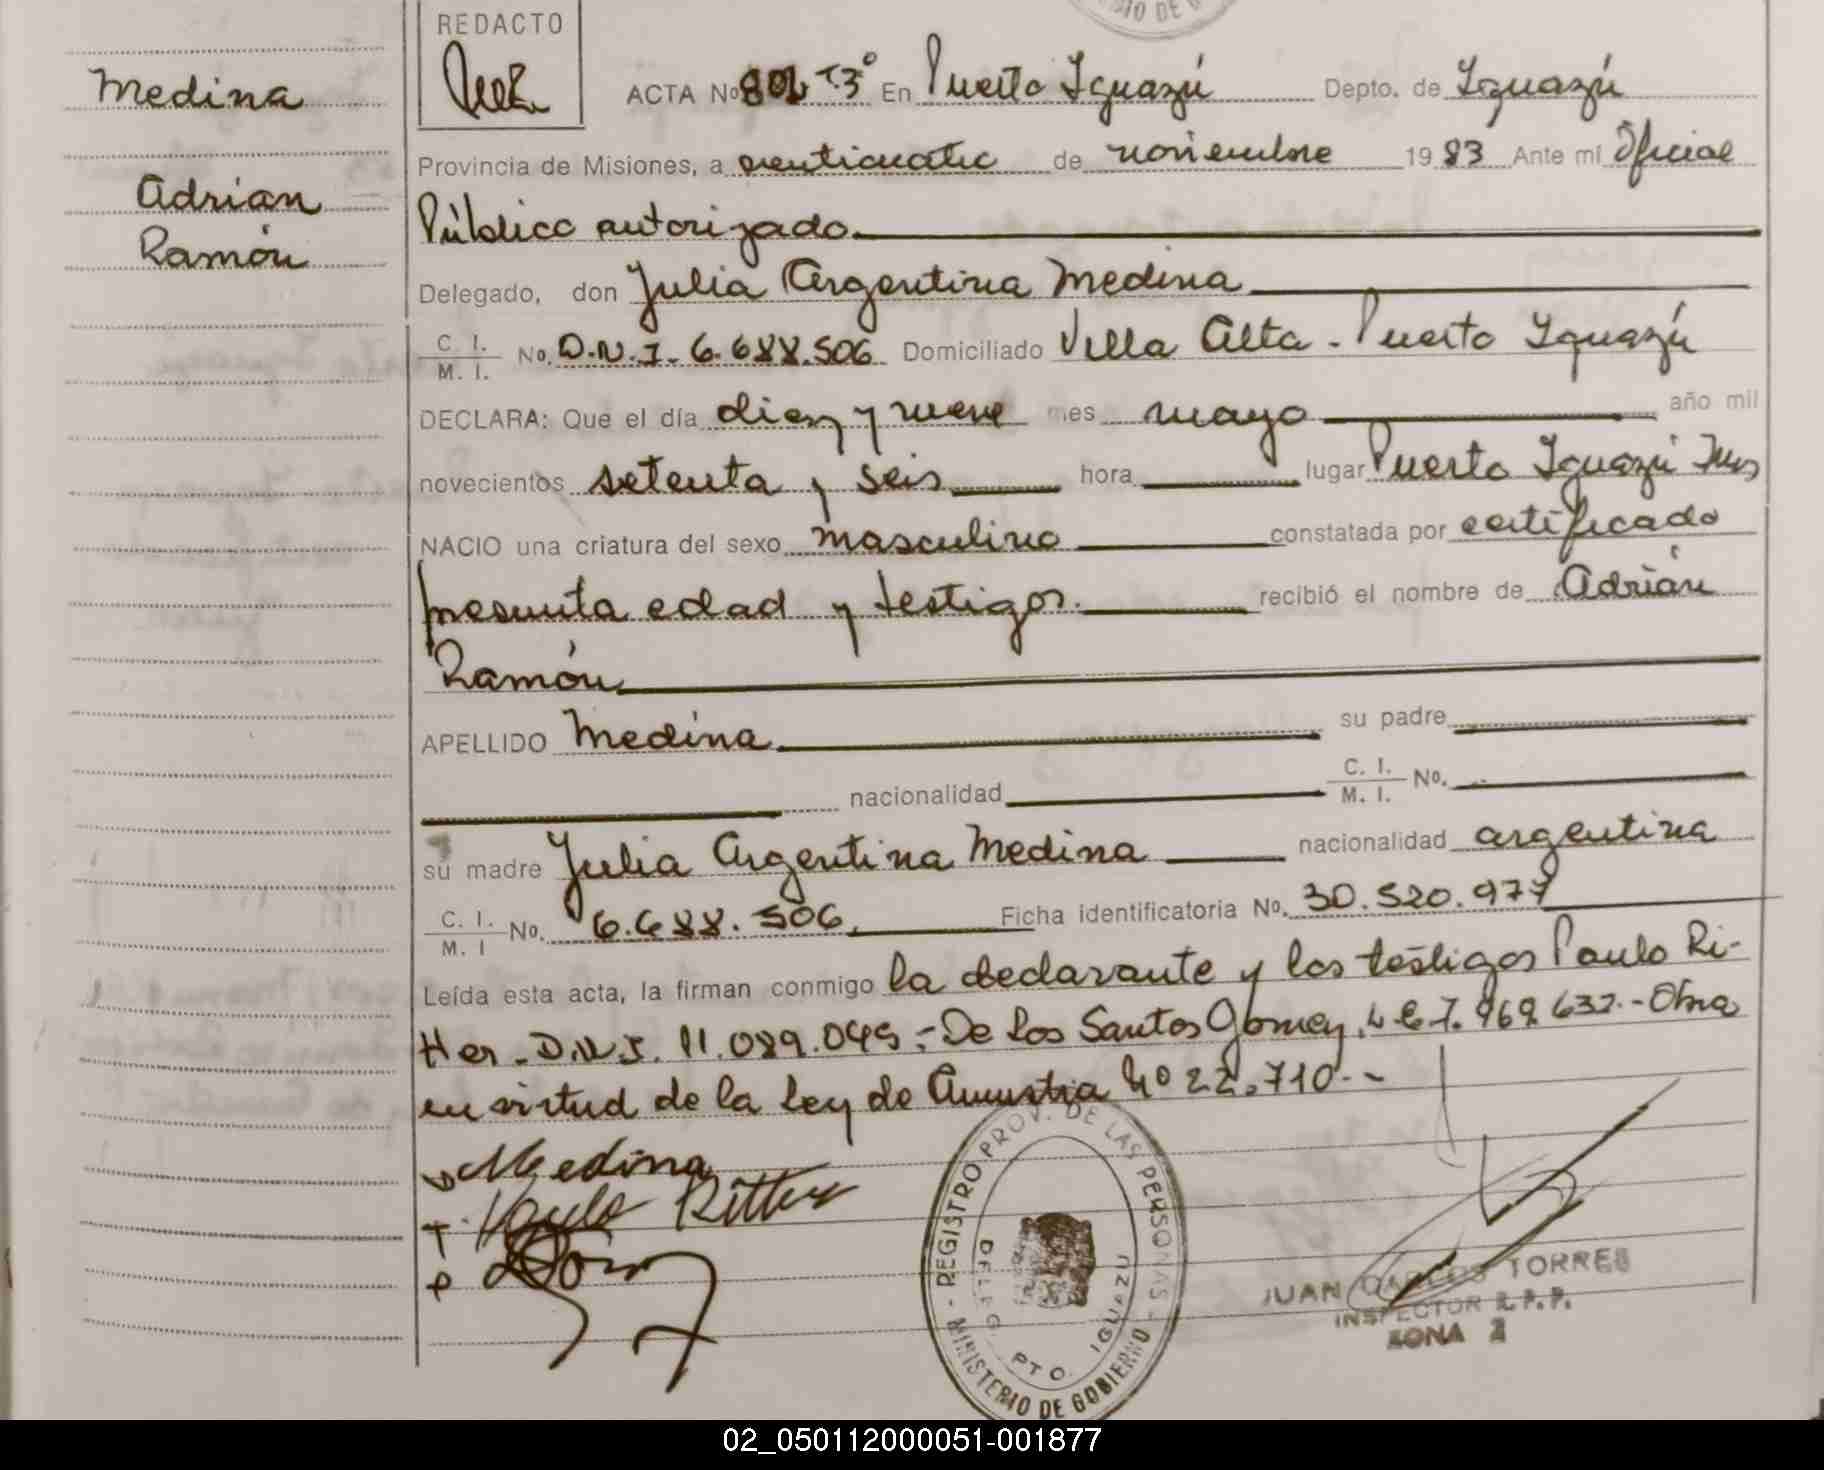 REDACTO
Medina
Adrián
Ramón
ACTA No 802 T3° En Puerto Iguazú Depto. de Iguazú
Provincia de Misiones, a veinticuatro de noviembre 1983 Ante mí Oficial
Público autorizado
Delegado, don Julia Argentina Medina
C. I. / M. I. No. D.N.I. 6.688.506 Domiciliado Villa Alta - Puerto Iguazú
DECLARA: Que el día diez y nueve mes mayo año mil
novecientos setenta y seis hora lugar Puerto Iguazú Mns
NACIO una criatura del sexo masculino constatada por certificado
presunta edad y testigos. recibió el nombre de Adrián
Ramón
APELLIDO Medina su padre
nacionalidad C. I. / M. I. No.
su madre Julia Argentina Medina nacionalidad argentina
C. I. / M. I No. 6.688.506. Ficha identificatoria No. 30.520.977
Leída esta acta, la firman conmigo la declarante y los testigos Paulo Ri-
tter - D.N.I. 11.089.045 - De los Santos Gomez, L E 7.969.632 - Obra
en virtud de la Ley de Amnistia Nº 22.710 -
Medina
T. Paulo Ritter
REGISTRO PROV. DE LAS PERSONAS - MINISTERIO DE GOBIERNO -
DELEG. PTO. IGUAZU
JUAN CARLOS TORRES
INSPECTOR R.P.P.
ZONA 2
02_050112000051-001877